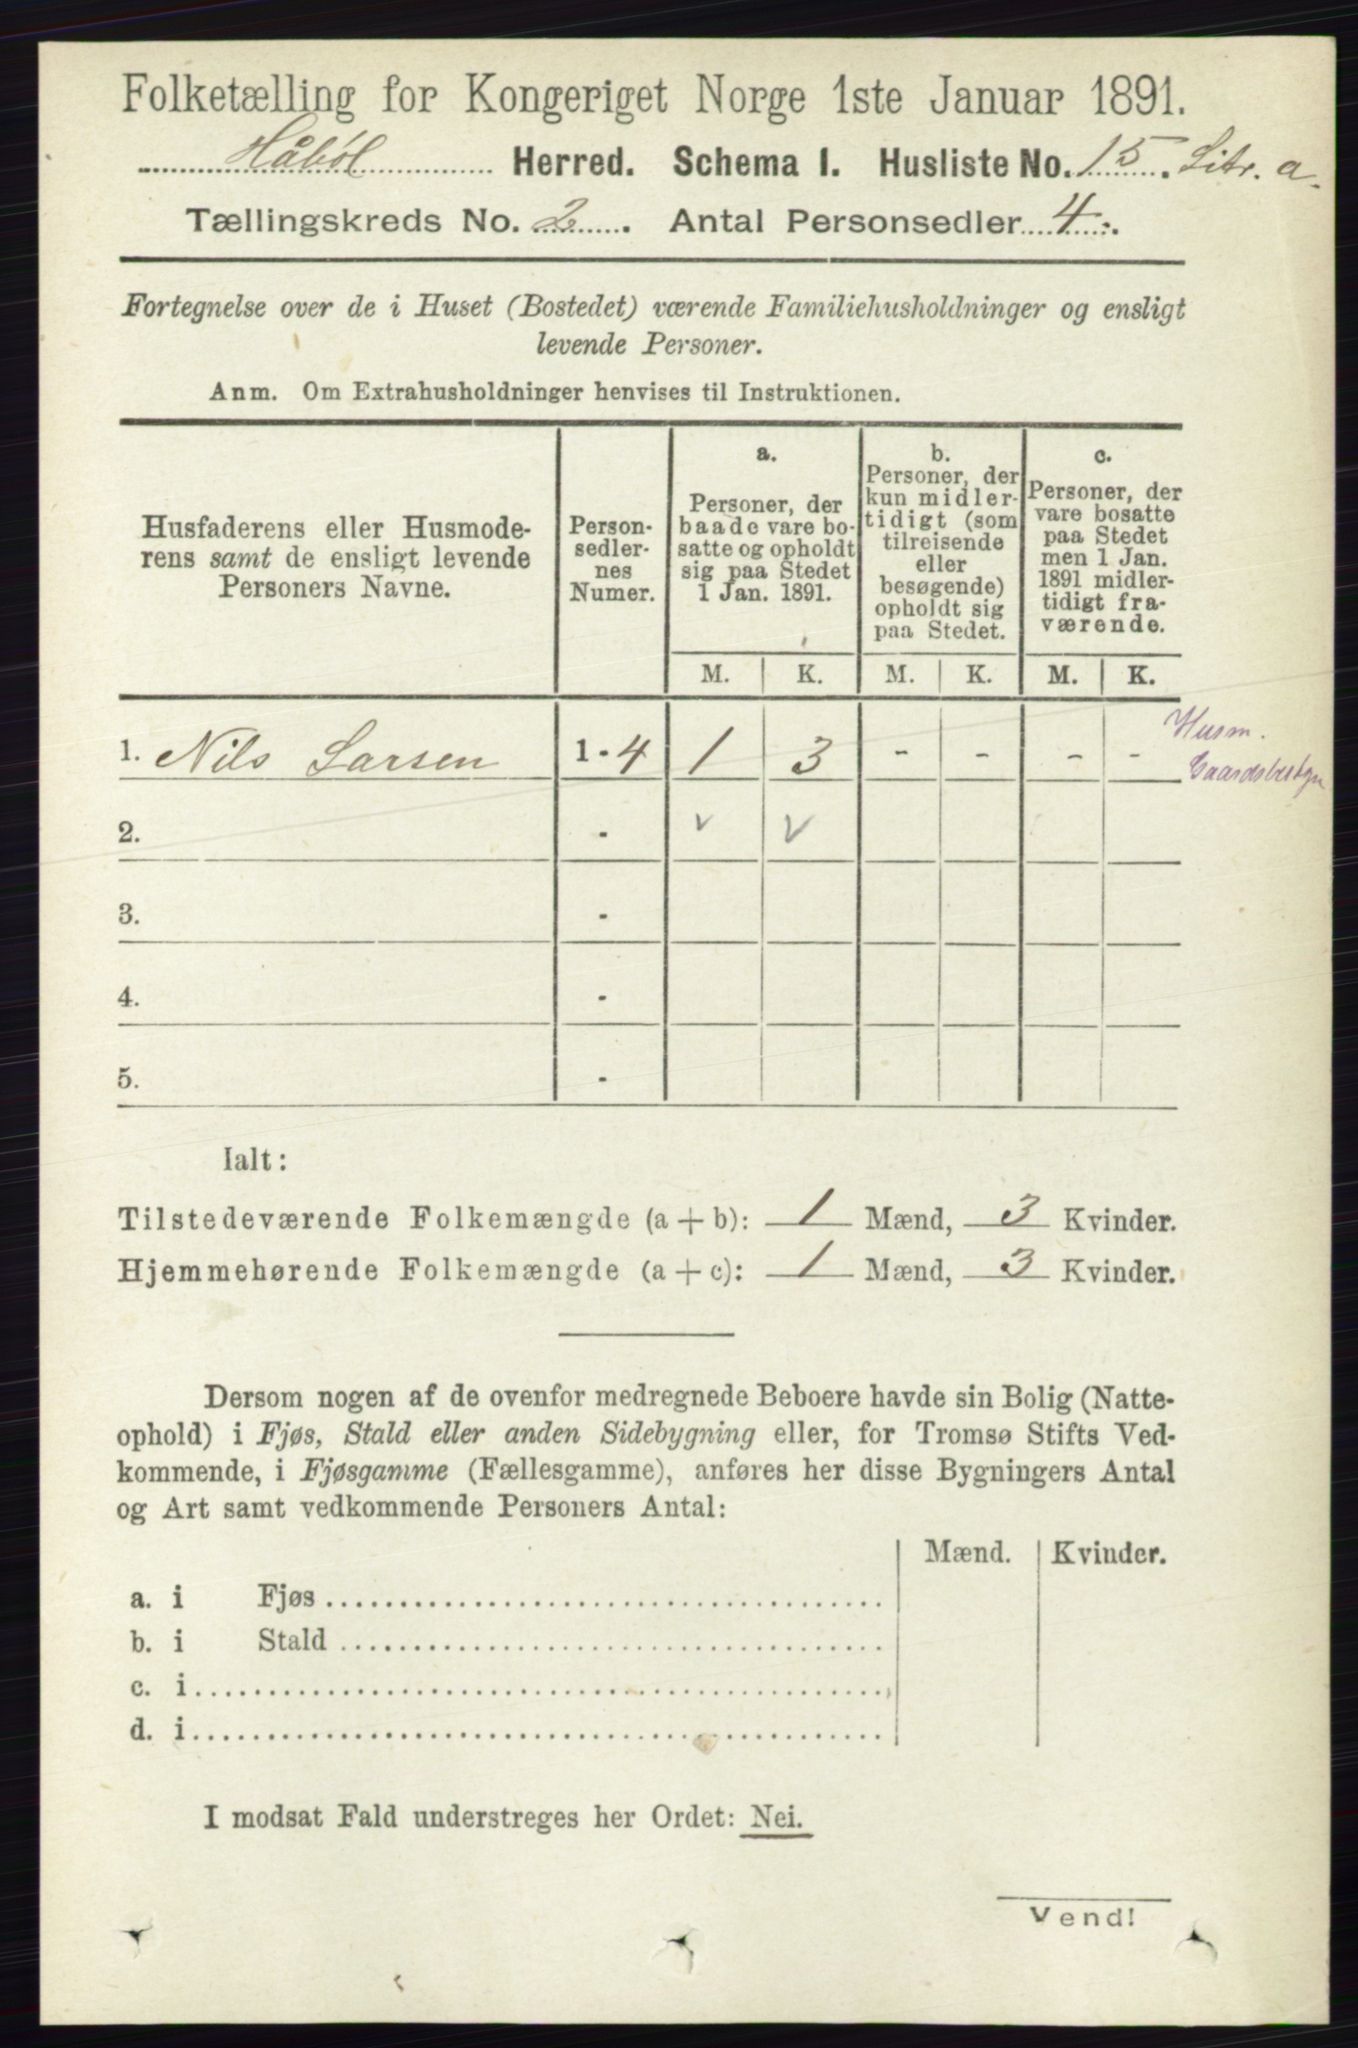 Folketælling for Kongeriget Norge 1ste Januar 1891.
Håbøl Herred. Schema I. Husliste No. 15. Litr. a.
Tællingskreds No. 2. Antal Personsedler 4.
Fortegnelse over de i Huset (Bostedet) værende Familiehusholdninger og ensligt
levende Personer.
Anm. Om Extrahusholdninger henvises til Instruktionen.
Husfaderens eller Husmode-
rens samt de ensligt levende
Personers Navne.
Person-
sedler-
nes
Numer.
a.
Personer, der
baade vare bo-
satte og opholdt
sig paa Stedet
1 Jan. 1891.
b.
Personer, der
kun midler-
tidigt (som
tilreisende
eller
besøgende)
opholdt sig
paa Stedet.
c.
Personer, der
vare bosatte
paa Stedet
men 1 Jan.
1891 midler-
tidigt fra-
værende.
M. K. M. K. M. K.
1. Nils Larsen 1-4 1 3 - - - - Husm.
Gaardsbestyr
2. - v v
3. -
4. -
5. -
Ialt:
Tilstedeværende Folkemængde (a + b): 1 Mænd, 3 Kvinder.
Hjemmehørende Folkemængde (a + c): 1 Mænd, 3 Kvinder.
Dersom nogen af de ovenfor medregnede Beboere havde sin Bolig (Natte-
ophold) i Fjøs, Stald eller anden Sidebygning eller, for Tromsø Stifts Ved-
kommende, i Fjøsgamme (Fællesgamme), anføres her disse Bygningers Antal
og Art samt vedkommende Personers Antal:
Mænd. Kvinder.
a. i Fjøs
b. i Stald
c. i
d. i
I modsat Fald understreges her Ordet: Nei.
Vend!